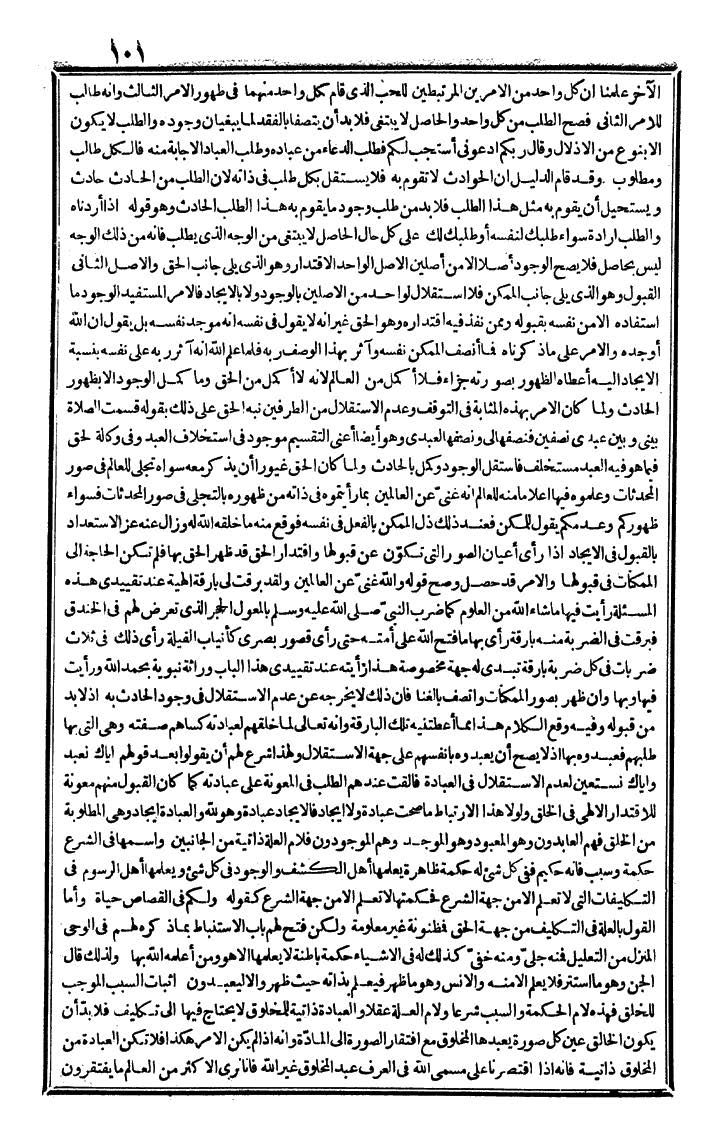 ١٠١
الآخر علمنا ان كل واحد من الامرين المرتبطين للحب الذى قام كل واحد منهما فى ظهور الامر الثالث وانه طالب
للامر الثانى فصح الطلب من كل واحد والحاصل لا يبتغى فلا بد أن يتصفا بالفقد لما يبغيان وجوده والطلب لا يكون
الا بنوع من الاذلال وقال ربكم ادعونى أستجب لكم فطلب الدعاء من عباده وطلب العباد الاجابة منه فالكل طالب
ومطلوب وقد قام الدليل ان الحوادث لا تقوم به فلا يستقل بكل طلب فى ذاته لان الطلب من الحادث حادث
ويستحيل أن يقوم به مثل هذا الطلب فلا بد من طلب وجود ما يقوم به هذا الطلب الحادث وهو قوله اذا أردناه
والطلب ارادة سواء طلبك لنفسه أو طلبك لك على كل حال الحاصل لا يبتغى من الوجه الذى يطلب فانه من ذلك الوجه
ليس بحاصل فلا يصح الوجود أصلا الا من أصلين الاصل الواحد الاقتدار وهو الذى يلى جانب الحق والاصل الثانى
القبول وهو الذى يلى جانب الممكن فلا استقلال لواحد من الاصلين بالوجود ولا بالايجاد فالامر المستفيد الوجود ما
استفاده الا من نفسه بقبوله وممن نفذ فيه اقتداره وهو الحق غير انه لا يقول فى نفسه انه موجد نفسه بل يقول ان الله
أوجده والامر على ما ذكرناه فما أنصف الممكن نفسه وآثر بهذا الوصف ربه فلما علم الله انه آثر ربه على نفسه بنسبة
الايجاد اليه أعطاه الظهور بصورته جزاء فلا أكمل من العالم لانه لا أكمل من الحق وما كمل الوجود الا بظهور
الحادث ولما كان الامر بهذه المثابة فى التوقف وعدم الاستقلال من الطرفين نبه الحق على ذلك بقوله قسمت الصلاة
بينى وبين عبدى نصفين فنصفها لى ونصفها لعبدى وهو أيضا أعنى التقسيم موجود فى استخلاف العبد وفى وكالة لحق
فيما هو فيه العبد مستخلف فاستقل الوجود وكمل بالحادث ولما كان الحق غيورا أن يذكر معه سواه تجلى للعالم فى صور
المحدثات وعلموه فيها اعلاما منه للعالم انه غنىّ عن العالمين بما رأيتموه فى ذاته من ظهوره بالتجلى فى صور المحدثات فسواء
ظهوركم وعدمكم يقول للممكن فعند ذلك ذل الممكن بالفعل فى نفسه فوقع منه ما خلقه الله له وزال عنه عز الاستعداد
بالقبول فى الايجاد اذا رأى أعيان الصور التى تتكوّن عن قبولها واقتدار الحق قد ظهر الحق بها فلم تكن الحاجة الى
الممكنات فى قبولها والامر قد حصل وصح قوله والله غنىّ عن العالمين ولقد برقت لى بارقة الهية عند تقييدى هذه
المسئلة رأيت فيها ما شاء الله من العلوم كما ضرب النبىّ صلى الله عليه وسلم بالمعول الحجر الذى تعرض لهم فى الخندق
فبرقت فى الضربة منه بارقة رأى بها ما فتح الله على أمته حتى رأى قصور بصرى كأنياب الفيلة رأى ذلك فى ثلاث
ضربات فى كل ضربة بارقة تبدى له جهة مخصوصة هذا رأيته عند تقييدى هذا الباب وراثة نبوية بحمد الله ورأيت
فيها وبها وان ظهر بصور الممكنات واتصف بالغنا فان ذلك لا يخرجه عن عدم الاستقلال فى وجود الحادث به اذ لا بد
من قبوله وفيه وقع الكلام هذا مما أعطتنيه تلك البارقة وانه تعالى لما خلقهم لعبادته كساهم صفته وهى التى بها
طلبهم فعبدوه بها اذ لا يصح أن يعبدوه بانفسهم على جهة الاستقلال ولهذا شرع لهم أن يقولوا بعد قولهم اياك نعبد
واياك نستعين لعدم الاستقلال فى العبادة فالقت عندهم الطلب فى المعونة على عبادته كما كان القبول منهم معونة
للاقتدار الالهى فى الخلق ولولا هذا الارتباط ما صحت عبادة ولا ايجاد فالايجاد عبادة وهو لله والعبادة ايجاد وهى المطلوبة
من الخلق فهم العابدون وهو المعبود وهو الموجد وهم الموجودون فلام العلة ذاتية من الجانبين واسمها فى الشرع
حكمة وسبب فانه حكيم ففى كل شئ له حكمة ظاهرة يعلمها أهل الكشف والوجود فى كل شئ ويعلمها أهل الرسوم فى
التكليفات التى لا تعلم الا من جهة الشرع فحكمتها لا تعلم الا من جهة الشرع كقوله ولكم فى القصاص حياة وأما
القول بالعلة فى التكليف من جهة الحق فظنونة غير معلومة ولكن فتح لهم باب الاستنباط بما ذكره لهم فى الوحى
المنزل من التعليل فنه جلىّ ومنه خفىّ كذلك له فى الاشياء حكمة باطنة لا يعلمها الا هو ومن أعلمه الله بها ولذلك قال
الجن وهو ما استتر فلا يعلم الا منه والانس وهو ما ظهر فيعلم بذاته حيث ظهر والا ليعبدون اثبات السبب الموجب
للخلق فهذه لام الحكمة والسبب شرعا ولام العلة عقلا والعبادة ذاتية للمخلوق لا يحتاج فيها الى تكليف فلا بدّ أن
يكون الخالق عين كل صورة يعبدها المخلوق مع افتقار الصورة الى المادّة وانه اذا لم يكن الامر هكذا فلا تكن العبادة من
المخلوق ذاتية فانه اذا اقتصرنا على مسمى الله فى العرف عبد المخلوق غير الله فانا نرى الاكثر من العالم ما يفتقرون